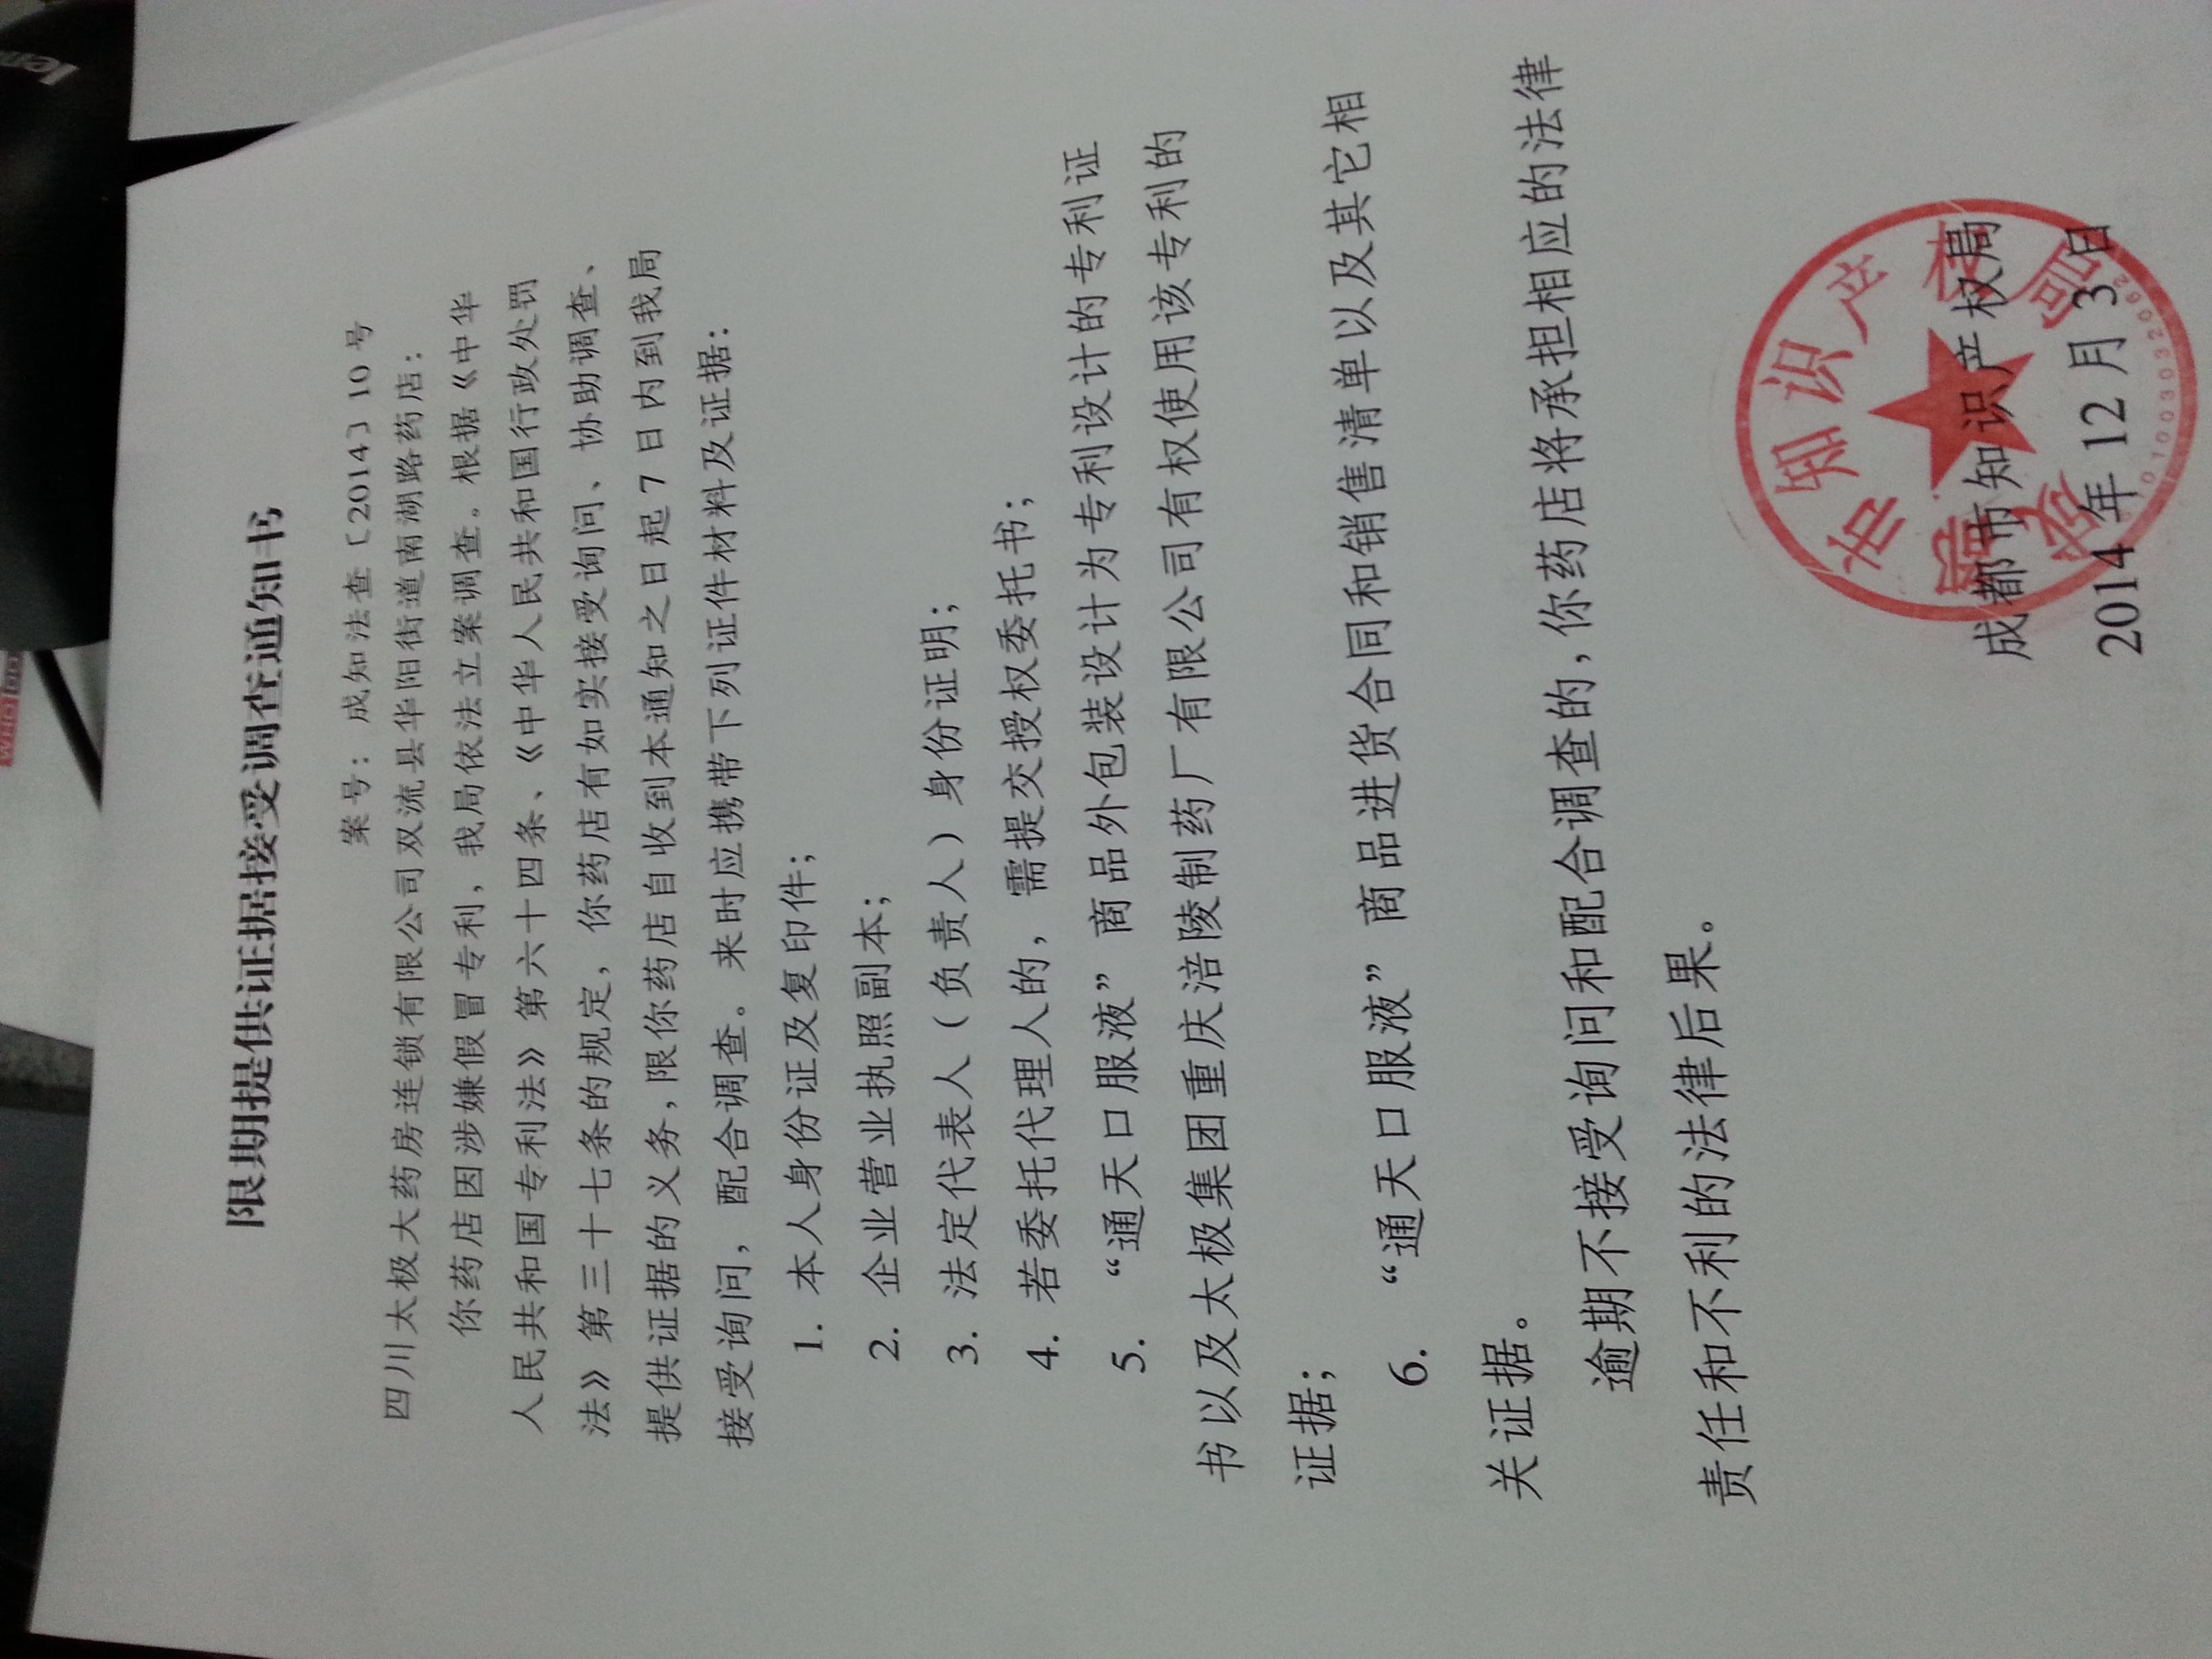 限期提供证据接受调查通知书
案号：成知法查〔2014〕10号
四川太极大药房连锁有限公司双流县华阳街道南湖路药店：
你药店因涉嫌假冒专利，我局依法立案调查。根据《中华
人民共和国专利法》第六十四条、《中华人民共和国行政处罚
法》第三十七条的规定，你药店有如实接受询问、协助调查、
提供证据的义务,限你药店自收到本通知之日起7日内到我局
接受询问，配合调查。来时应携带下列证件材料及证据：
1. 本人身份证及复印件；
2. 企业营业执照副本；
3. 法定代表人（负责人）身份证明；
4. 若委托代理人的，需提交授权委托书；
5. “通天口服液”商品外包装设计为专利设计的专利证
书以及太极集团重庆涪陵制药厂有限公司有权使用该专利的
证据；
6. “通天口服液”商品进货合同和销售清单以及其它相
关证据。
逾期不接受询问和配合调查的,你药店将承担相应的法律
责任和不利的法律后果。
成都市知识产权局
2014年12月3日
成都市知识产权局